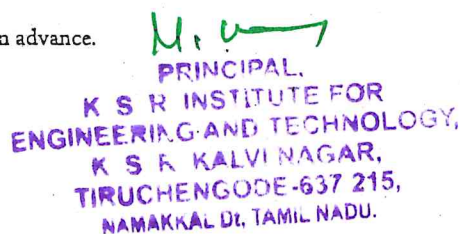 n advance.
PRINCIPAL,
K S R INSTITUTE FOR
ENGINEERING AND TECHNOLOGY,
K S R KALVI NAGAR,
TIRUCHENGODE-637 215,
NAMAKKAL Dt, TAMIL NADU.